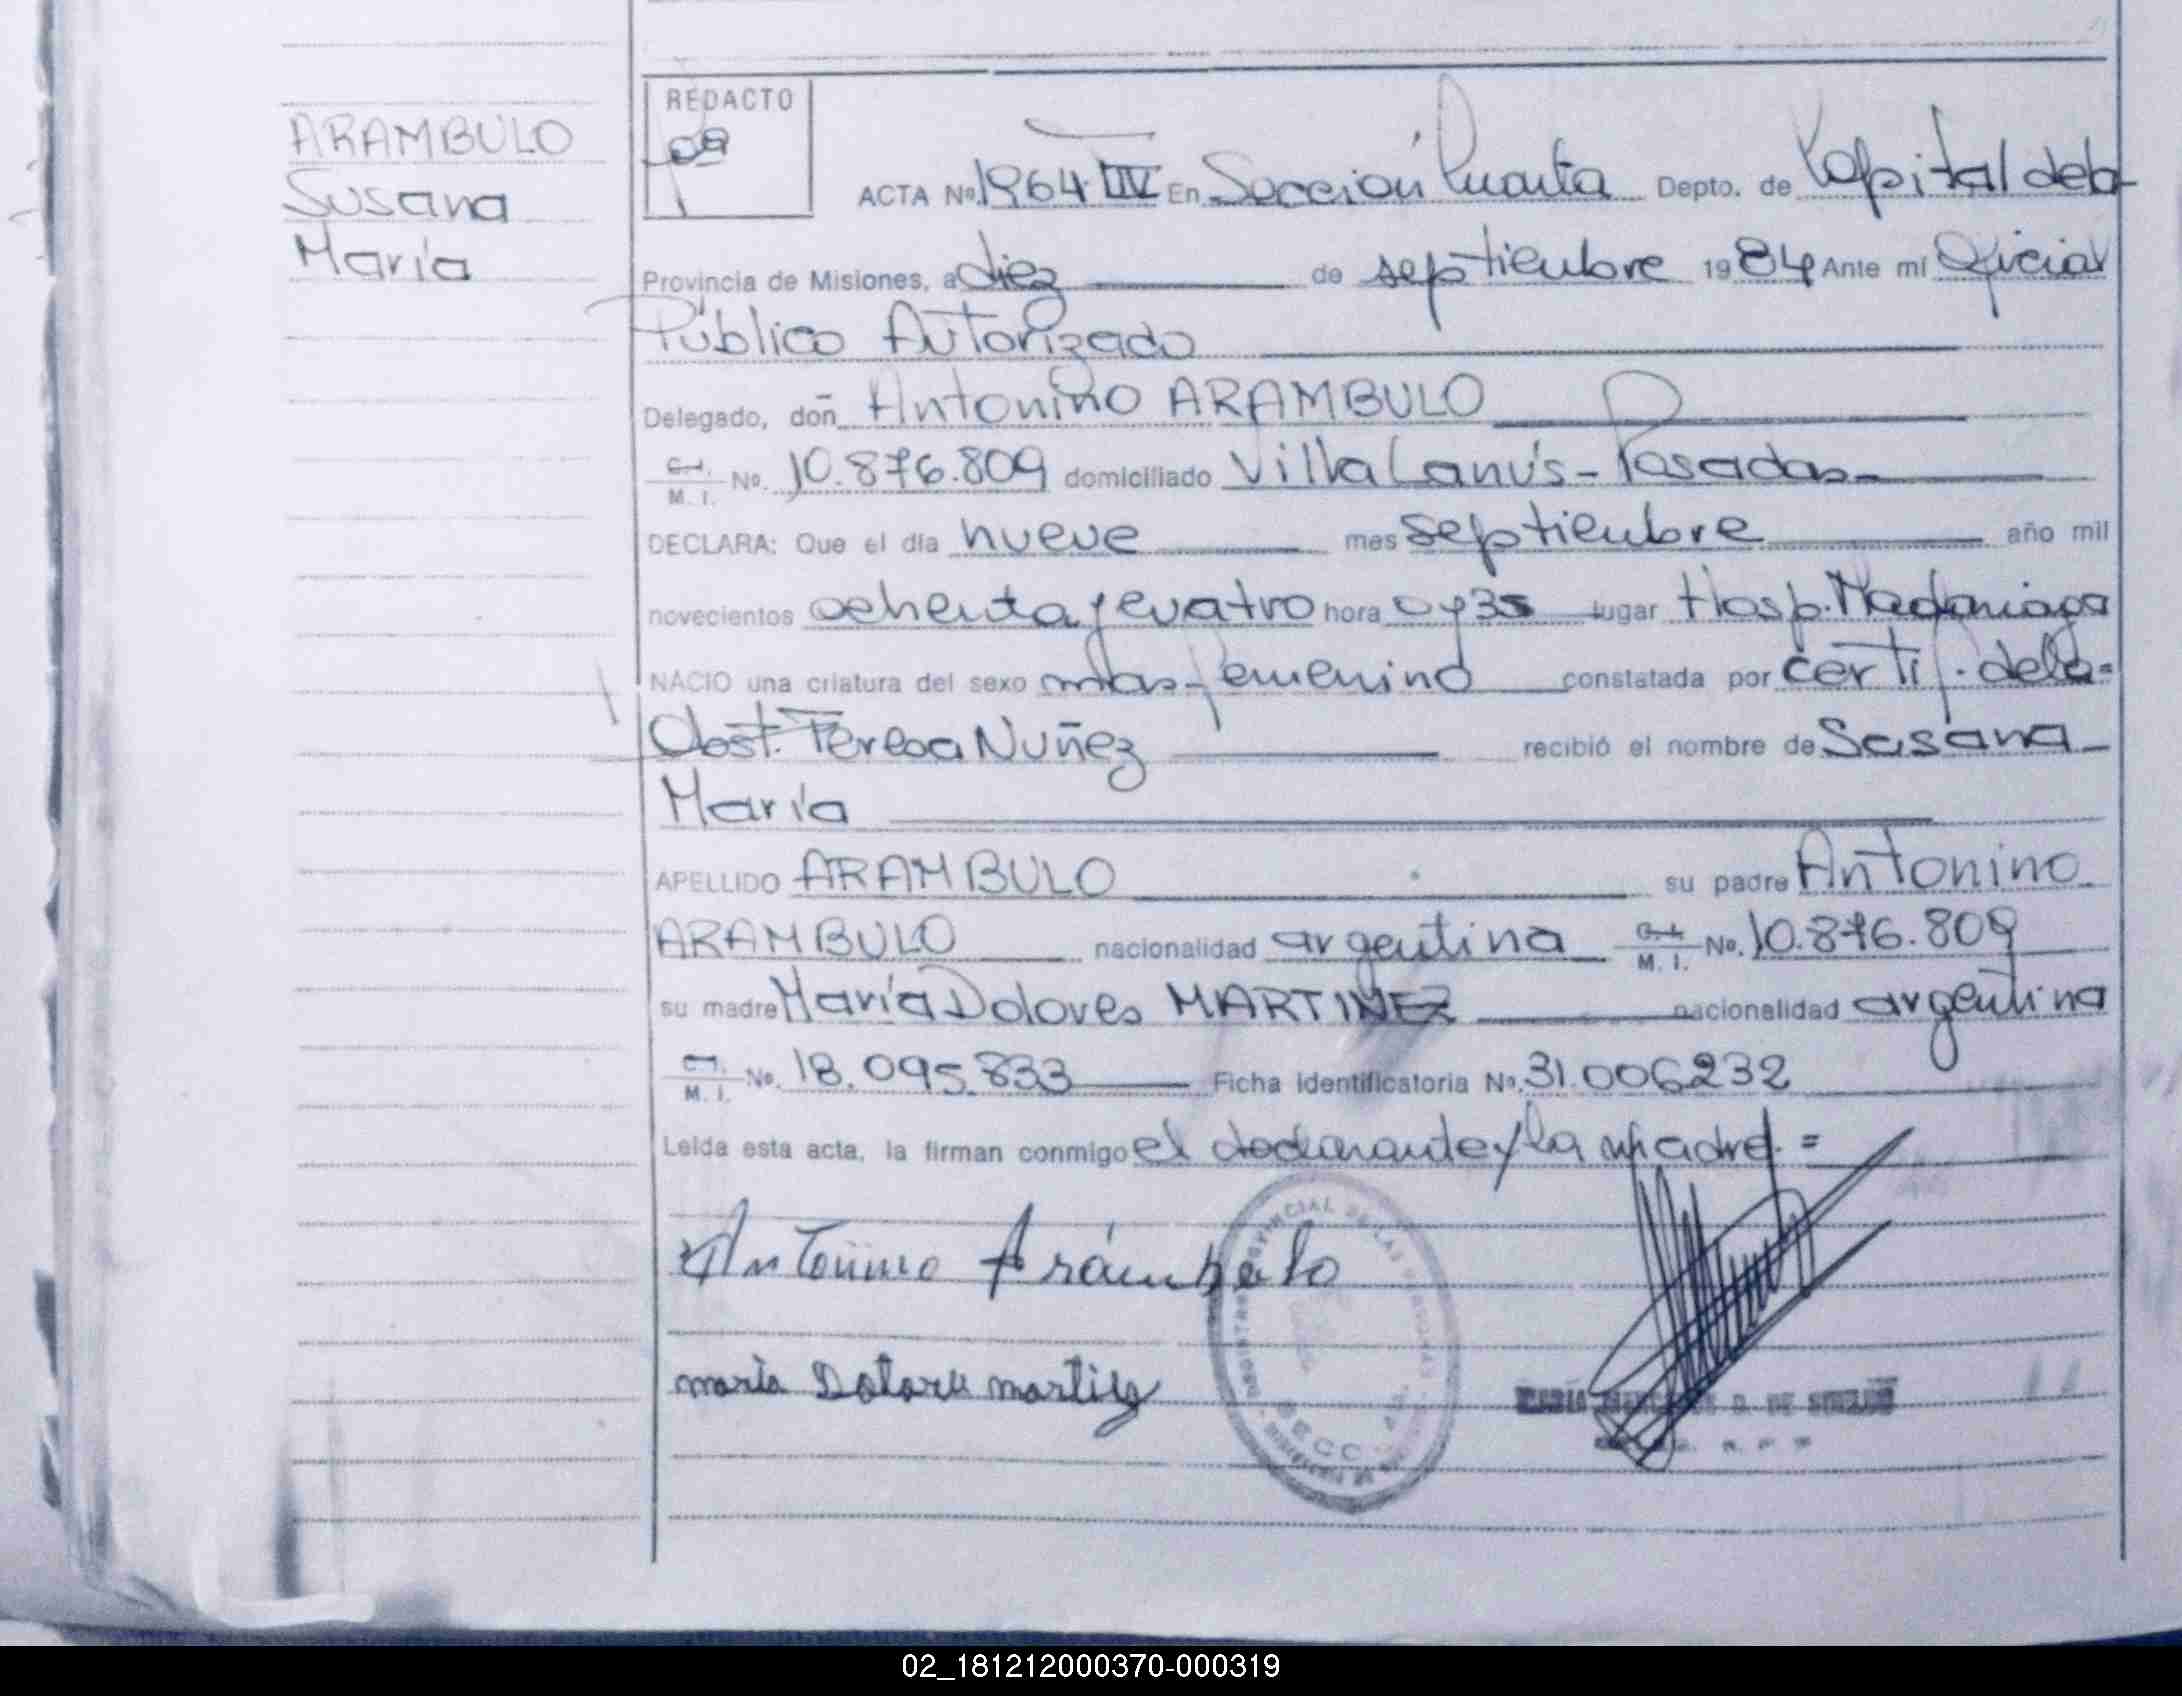 ARAMBULO
Susana
María
REDACTO
ACTA Nº 1964 T IV En Sección Cuarta Depto. de Capital de la
Provincia de Misiones, a diez de septiembre 1984 Ante mí Oficial
Público Autorizado
Delegado, don Antonino ARAMBULO
C.I. M. I. Nº. 10.876.809 domiciliado Villa Lanús - Posadas
DECLARA: Que el día nueve mes septiembre año mil
novecientos ochenta y cuatro hora 0 y 35 lugar Hosp. Madariaga
NACIO una criatura del sexo mas femenino constatada por certif. de la =
Obst. Teresa Nuñez recibió el nombre de Susana
María
APELLIDO ARAMBULO su padre Antonino
ARAMBULO nacionalidad argentina C.I. M. I. Nº. 10.876.809
su madre María Dolores MARTINEZ nacionalidad argentina
C.I. M. I. Nº. 18.095.833 Ficha Identificatoria Nº. 31.006232
Leída esta acta, la firman conmigo el declarante y la madre. =
Antonino Arámbulo
REGISTRO PROVINCIAL DE LAS PERSONAS
SECC. 4a.
MISIONES
maria Dolores martinez
D. DE
02_181212000370-000319